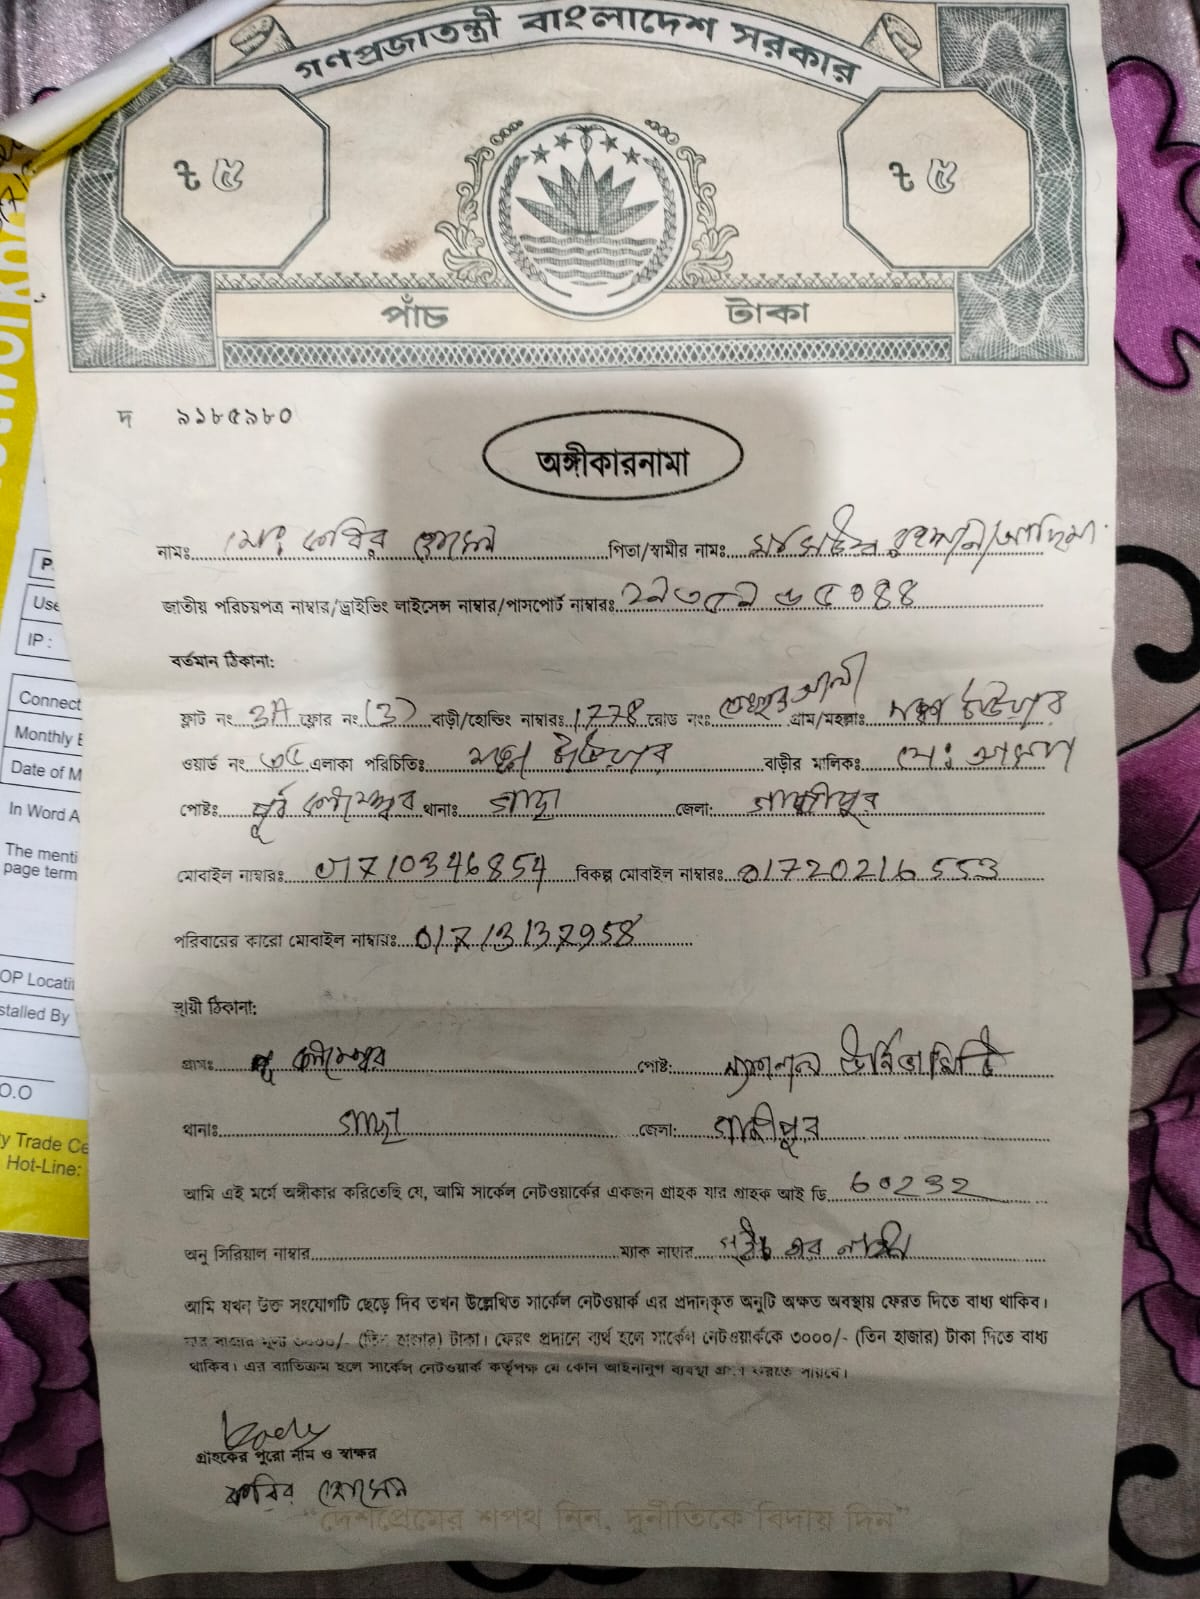 গণপ্রজাতন্ত্রী বাংলাদেশ সরকার
৳ ৫ ৳ ৫
পাঁচ টাকা
দ ৯১৮৫৯৮০
অঙ্গীকারনামা
নামঃ মোঃ কবির হোসেন পিতা/স্বামীর নাম:
জাতীয় পরিচয়পত্র নাম্বার/ড্রাইভিং লাইসেন্স নাম্বার/পাসপোর্ট নাম্বারঃ
বর্তমান ঠিকানা:
ফ্লাট নং 3A ফ্লোর নং (3) বাড়ী/হোল্ডিং নাম্বারঃ 1778 রোড নংঃ গ্রাম/মহল্লাঃ
ওয়ার্ড নং ৩৫ এলাকা পরিচিতিঃ বাড়ীর মালিকঃ মোঃ
পোষ্টঃ পূর্ব কলমেশ্বর থানাঃ গাছা জেলা: গাজীপুর
মোবাইল নাম্বারঃ 01710346854 বিকল্প মোবাইল নাম্বারঃ 01720216553
পরিবারের কারো মোবাইল নাম্বারঃ 01713137958
স্থায়ী ঠিকানা:
গ্রামঃ পূ কলমেশ্বর পোষ্ট: ন্যাশনাল ইউনিভার্সিটি
থানাঃ গাছা জেলা: গাজীপুর
আমি এই মর্মে অঙ্গীকার করিতেছি যে, আমি সার্কেল নেটওয়ার্কের একজন গ্রাহক যার গ্রাহক আই ডি 60232
অনু সিরিয়াল নাম্বার ম্যাক নাম্বার
আমি যখন উক্ত সংযোগটি ছেড়ে দিব তখন উল্লেখিত সার্কেল নেটওয়ার্ক এর প্রদানকৃত অনুটি অক্ষত অবস্থায় ফেরত দিতে বাধ্য থাকিব।
যার বাজার মূল্য ৩০০০/- (তিন হাজার) টাকা। ফেরৎ প্রদানে ব্যর্থ হলে সার্কেল নেটওয়ার্ককে ৩০০০/- (তিন হাজার) টাকা দিতে বাধ্য
থাকিব। এর ব্যতিক্রম হলে সার্কেল নেটওয়ার্ক কর্তৃপক্ষ যে কোন আইনানুগ ব্যবস্থা গ্রহণ করতে পারবে।
গ্রাহকের পুরো নাম ও স্বাক্ষর
কবির হোসেন
"দেশপ্রেমের শপথ নিন, দুর্নীতিকে বিদায় দিন"
P
Use
IP :
Connect
Monthly
Date of M
In Word A
The menti
page term
OP Locati
stalled By
O.O
y Trade Ce
Hot-Line: